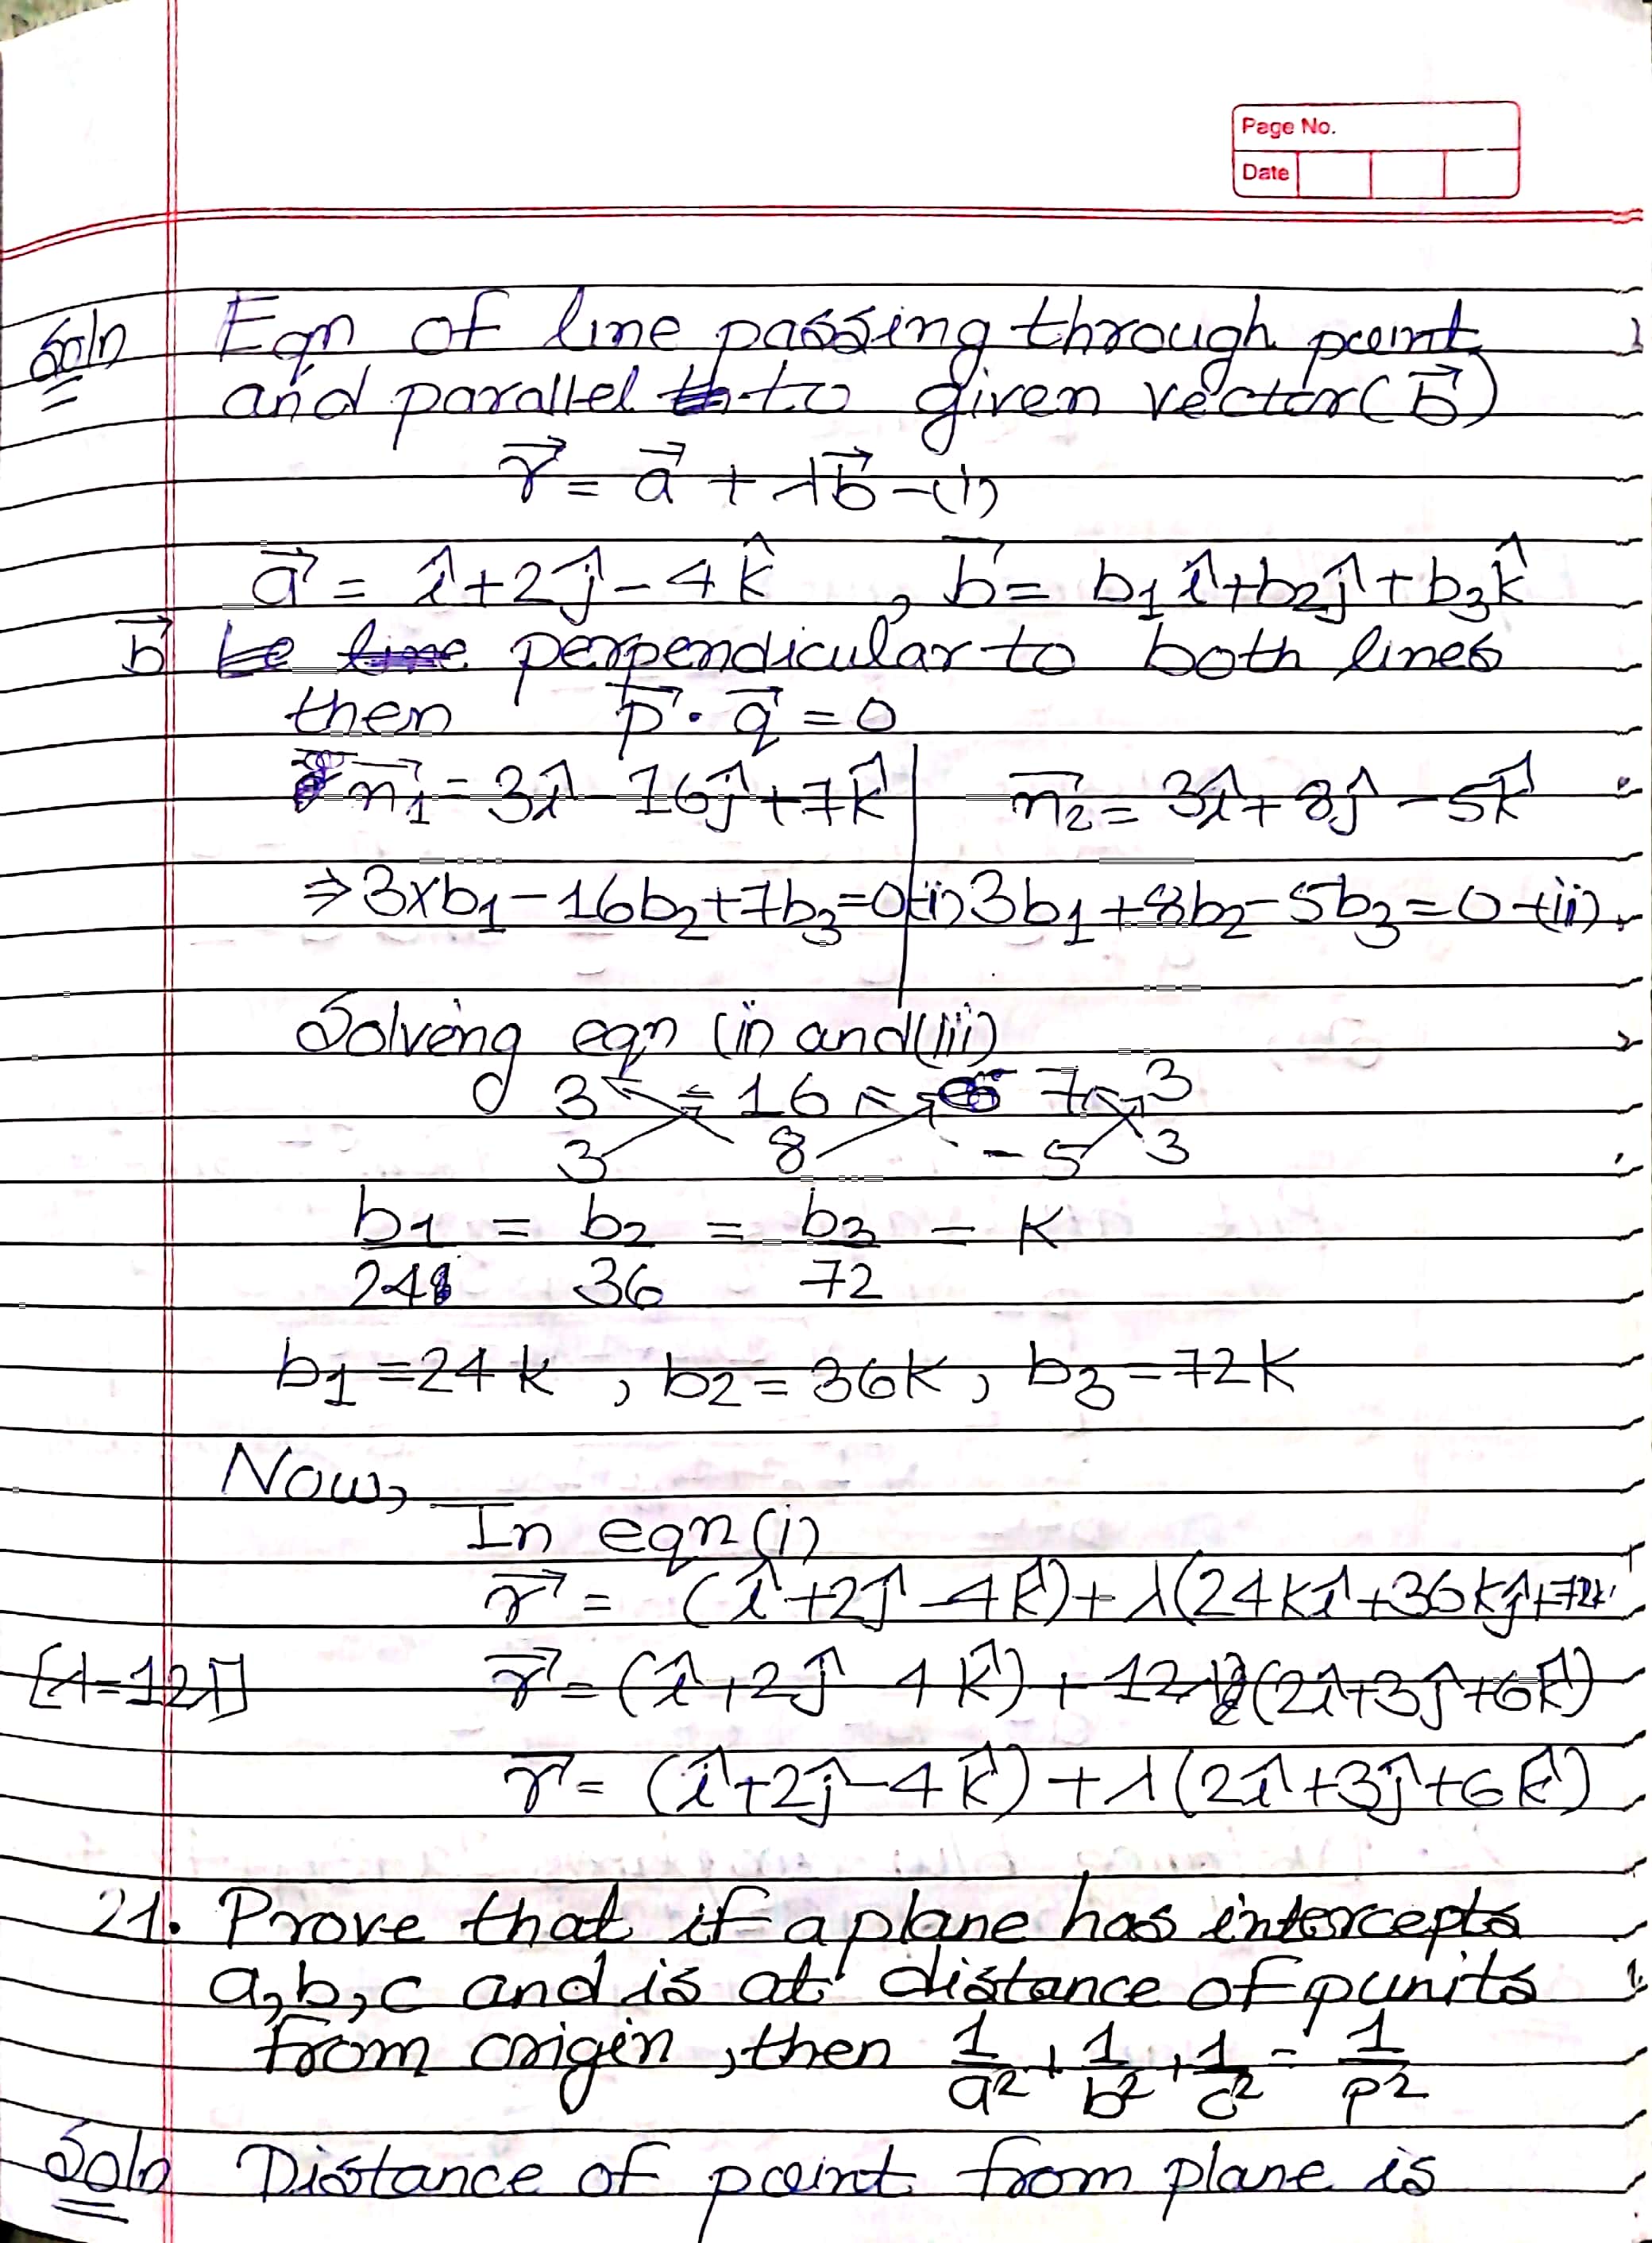 Page No.
Date
Soln Eqn of line passing through point
and parallel to given vector (b⃗)
r⃗ = a⃗ + λb⃗ -(i)
a⃗ = î+2ĵ-4k̂ , b⃗ = b₁î+b₂ĵ+b₃k̂
b⃗ perpendicular to both lines
then p⃗ · q⃗ = 0
n₁⃗ = 3î-16ĵ+7k̂ | n₂⃗ = 3î+8ĵ-5k̂
⇒ 3×b₁-16b₂+7b₃=0 -(i) 3b₁+8b₂-5b₃=0 -(ii)
Solving eqn (ii) and (iii)
3 -16 7 3
3 8 -5 3
b₁/24 = b₂/36 = b₃/72 = k
b₁=24k , b₂=36k , b₃=72k
Now,
In eqn (i)
r⃗ = (î+2ĵ-4k̂)+λ(24kî+36kĵ+72k
[λ=12λ] r⃗ = (î+2ĵ-4k̂)+12λ(2î+3ĵ+6k̂)
r⃗ = (î+2ĵ-4k̂)+λ(2î+3ĵ+6k̂)
21. Prove that if a plane has intercepts
a,b,c and is at distance of p units
from origin, then 1/a² + 1/b² + 1/c² = 1/p²
Soln Distance of point from plane is